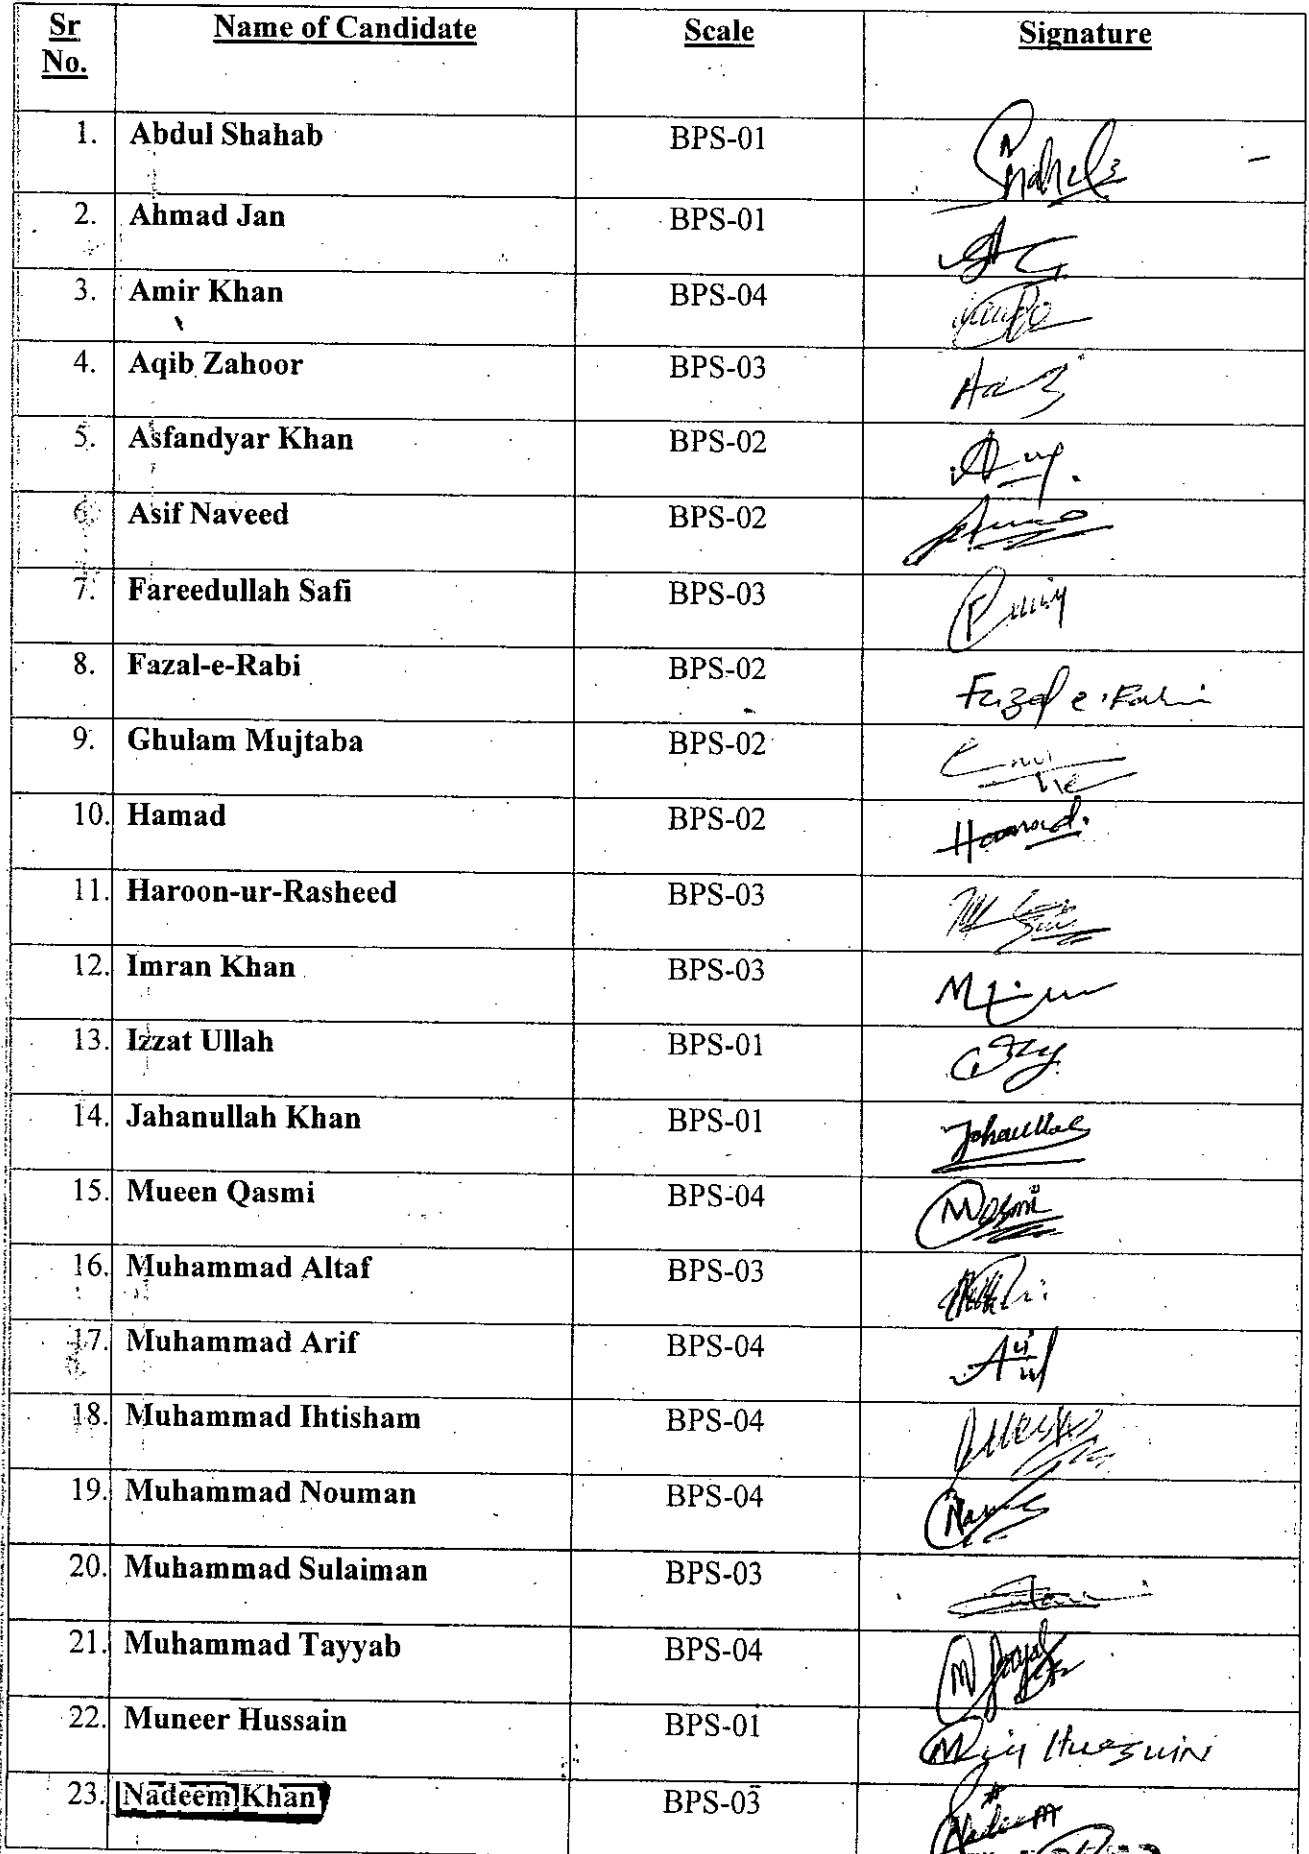 Sr No. Name of Candidate Scale Signature
1. Abdul Shahab BPS-01
2. Ahmad Jan BPS-01
3. Amir Khan BPS-04
4. Aqib Zahoor BPS-03
5. Asfandyar Khan BPS-02
6. Asif Naveed BPS-02
7. Fareedullah Safi BPS-03
8. Fazal-e-Rabi BPS-02
9. Ghulam Mujtaba BPS-02
10. Hamad BPS-02 Hammad.
11. Haroon-ur-Rasheed BPS-03
12. Imran Khan BPS-03
13. Izzat Ullah BPS-01
14. Jahanullah Khan BPS-01
15. Mueen Qasmi BPS-04
16. Muhammad Altaf BPS-03
17. Muhammad Arif BPS-04
18. Muhammad Ihtisham BPS-04
19. Muhammad Nouman BPS-04
20. Muhammad Sulaiman BPS-03
21. Muhammad Tayyab BPS-04
22. Muneer Hussain BPS-01
23. Nadeem Khan BPS-03 Nadeem